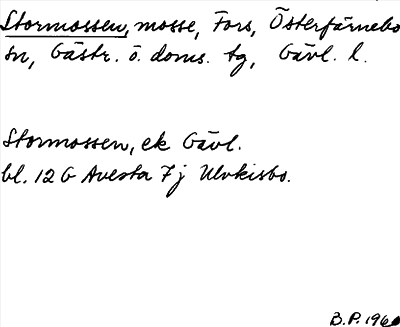 Stormossen, mosse, Fors, Österfärnebo
sn, Gästr. ö. doms. tg, Gävl. l.
Stormossen, ek Gävl.
bl. 12 G Avesta 7 j Ulvkisbo.
B.P. 196